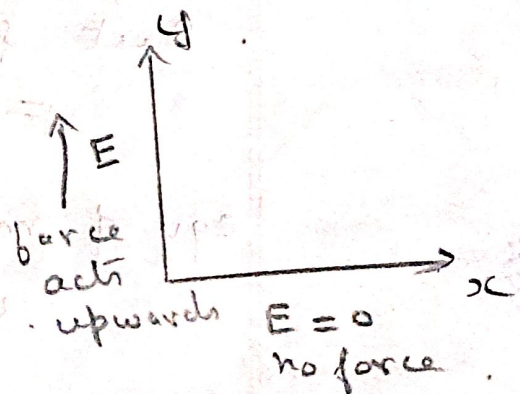 y
E
force
acts
upwards
x
E = 0
no force.